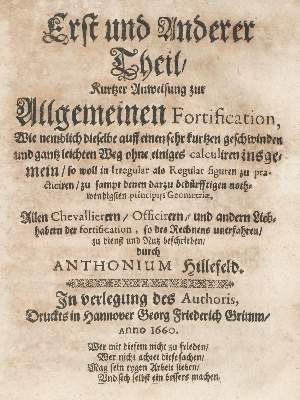 Erst und Anderer
Theil/
Kurtzer Anweisung zur
Allgemeinen Fortification,
Wie nemblich dieselbe auff einen sehr kurtzen geschwinden
und gantz leichten Weg ohne einiges calculiren insge-
mein/ so woll in Irregular als Regular figuren zu pra-
cticiren/ zu sampt denen darzu bedürfftigen noth-
wendigsten principiis Geometriæ.
Allen Chevallierern/ Officirern/ und andern Lieb-
habern der fortification, so des Rechnens unerfahren/
zu dienst und Nutz beschrieben/
durch
ANTHONIUM Hillefeld.
In verlegung des Authoris,
Druckts in Hannover Georg Friederich Grimm/
ANNO 1660.
Wer mit diesem nicht zu frieden/
Wer nicht achtet diese sachen/
Mag sein eygen Arbeit sieben/
Und sich selbst ein bessers machen.